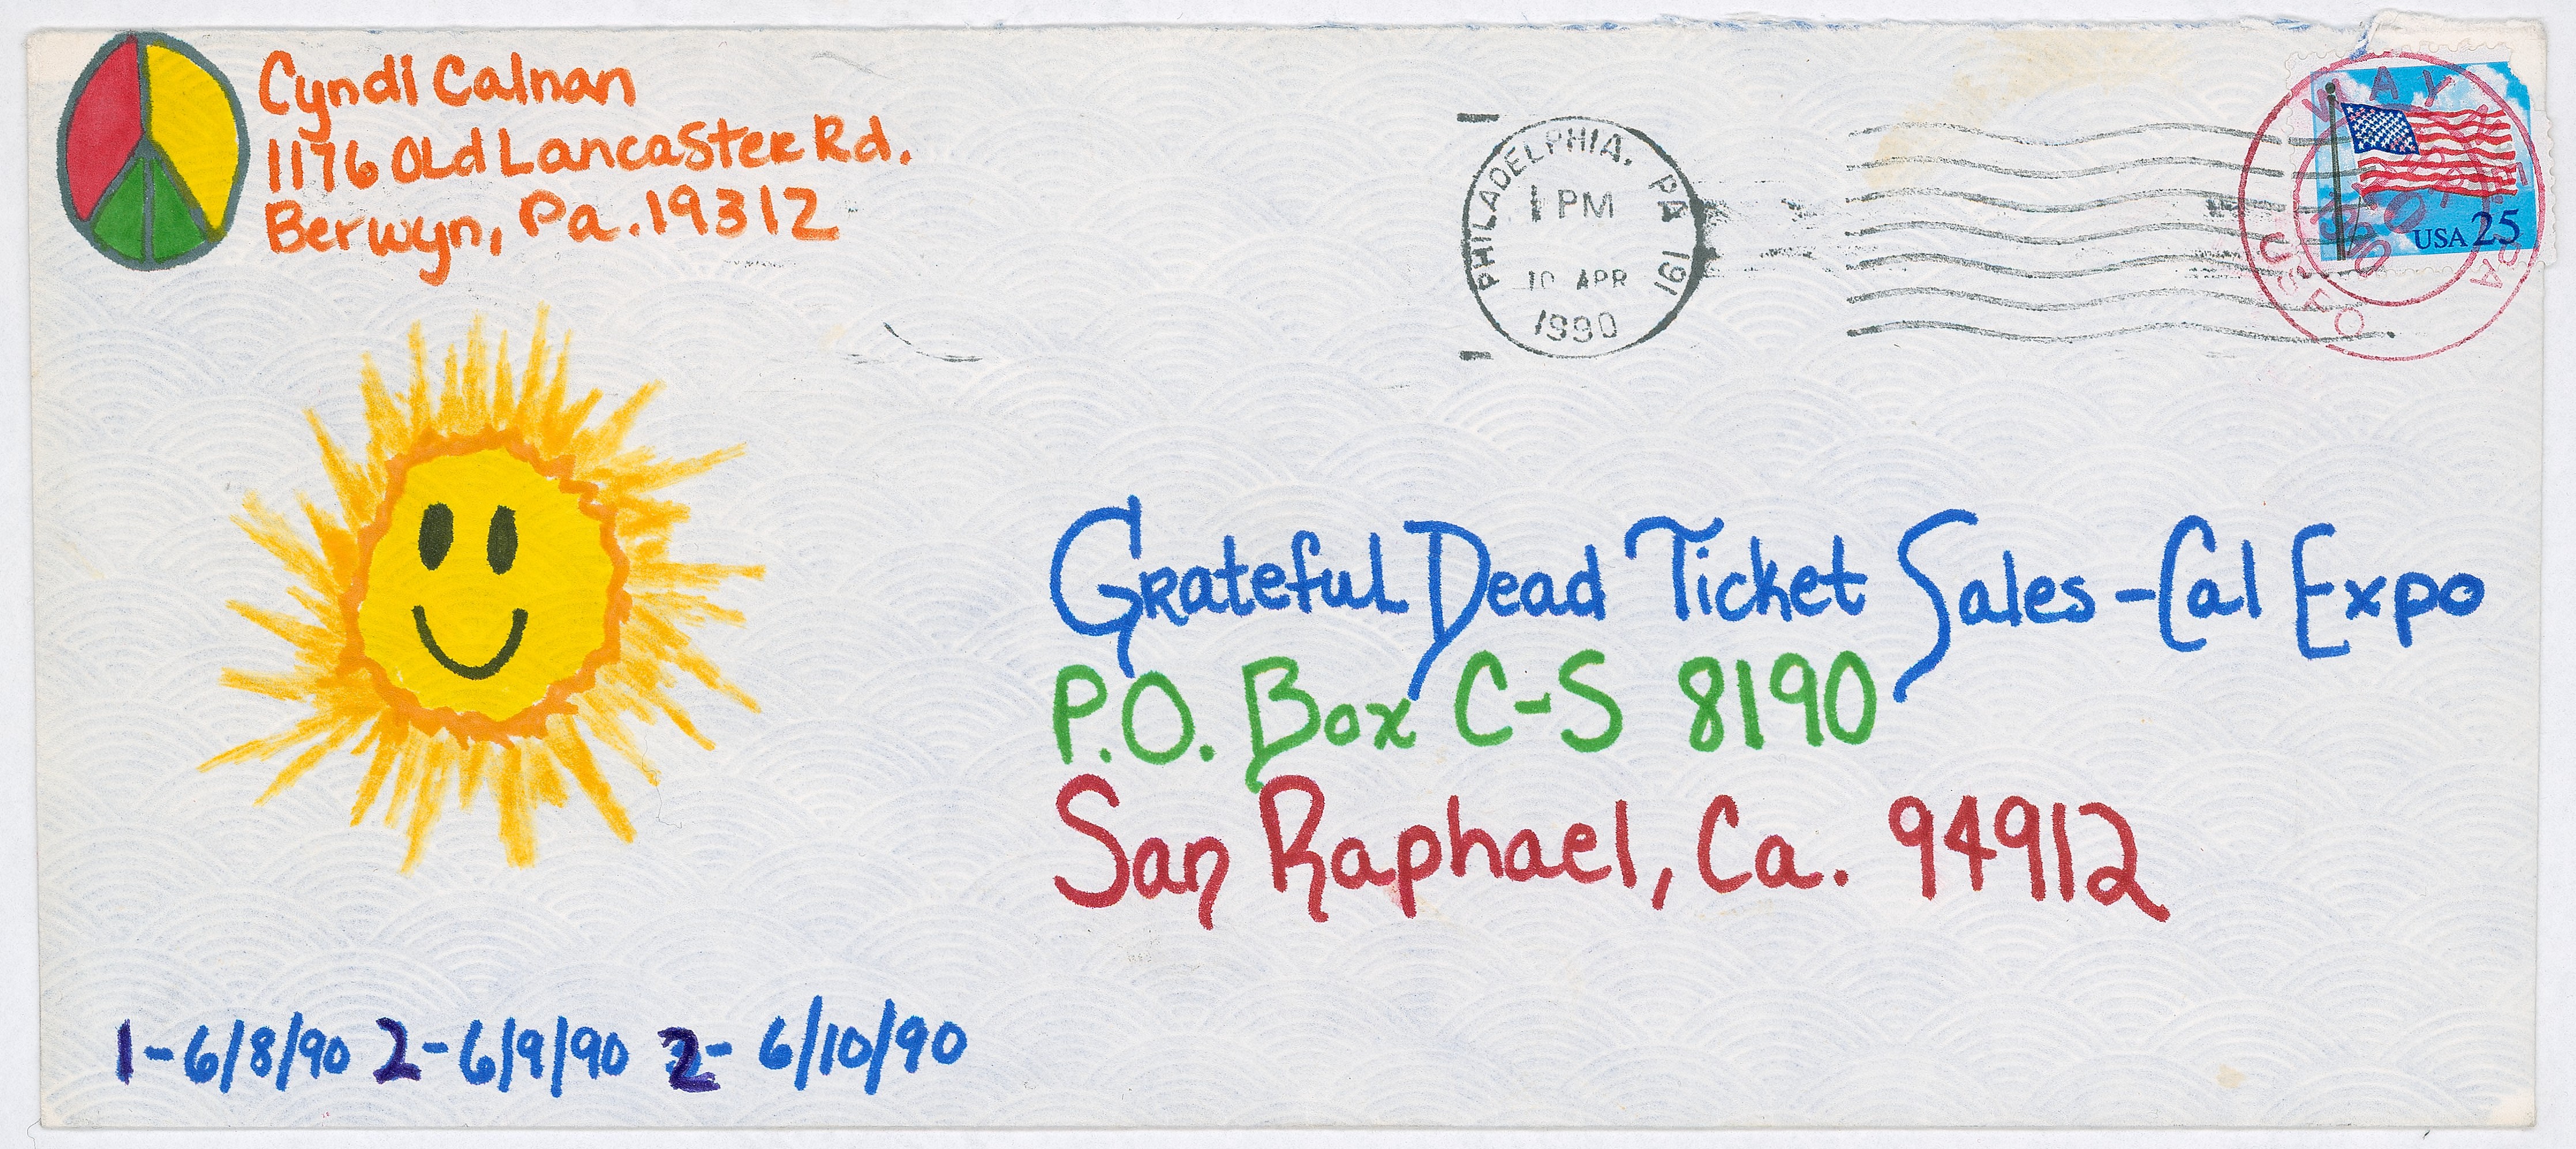 Cyndi Calnan
1176 Old Lancaster Rd.
Berwyn, Pa. 19312
PHILADELPHIA, PA 191
1 PM
10 APR
1990
WAY
PA
USPO
USA 25
Grateful Dead Ticket Sales - Cal Expo
P.O. Box C-S 8190
San Raphael, Ca. 94912
1- 6/8/90 2- 6/9/90 2- 6/10/90